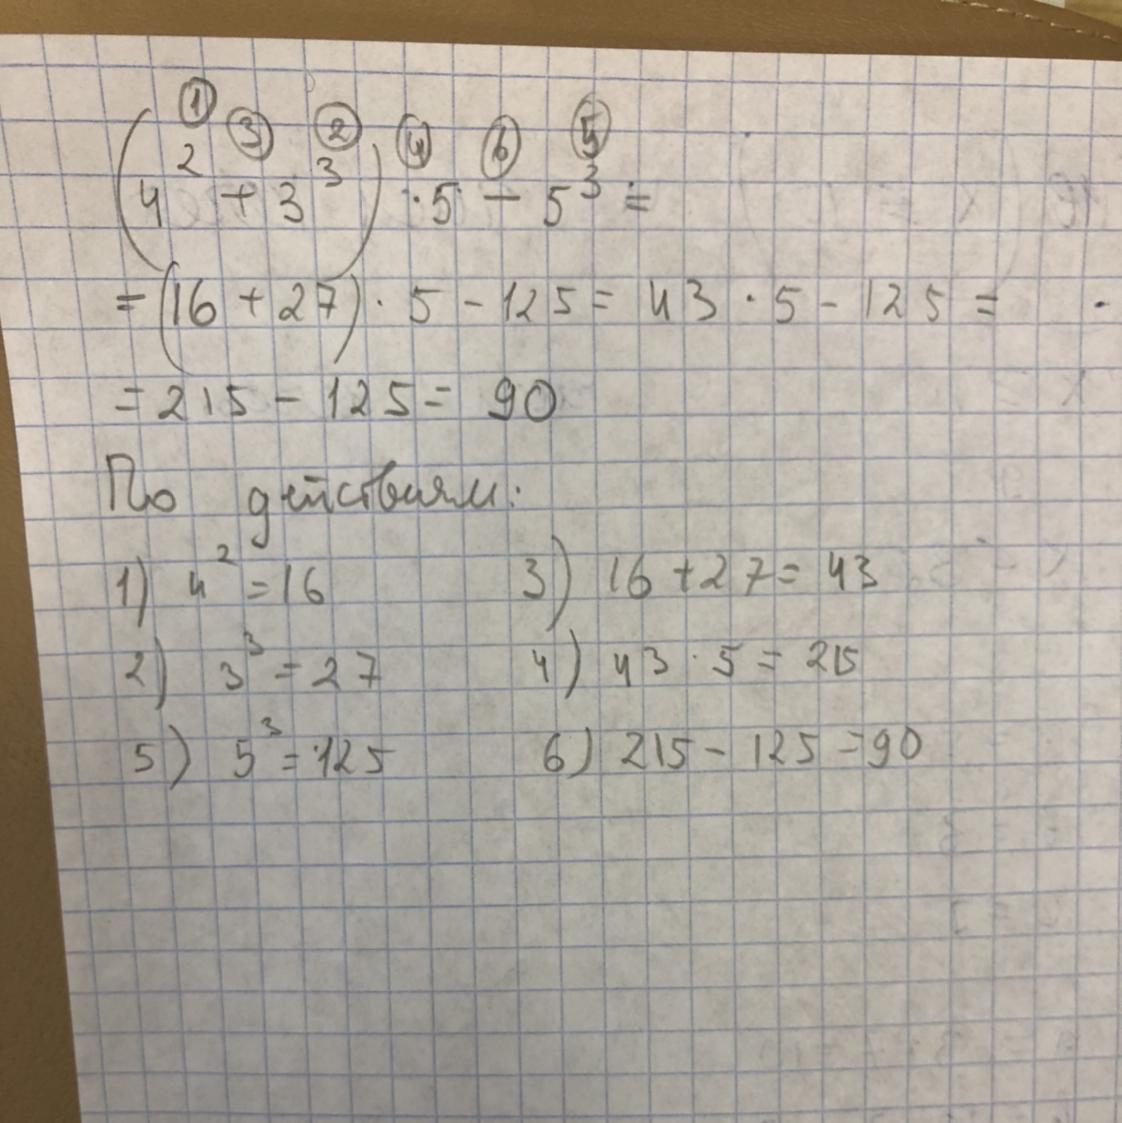 ① ③ ② ④ ⑥ ⑤
(4² + 3³) · 5 − 5³ =
= (16 + 27) · 5 − 125 = 43 · 5 − 125 =
= 215 − 125 = 90
По действиям:
1) 4² = 16 3) 16 + 27 = 43
2) 3³ = 27 4) 43 · 5 = 215
5) 5³ = 125 6) 215 − 125 = 90